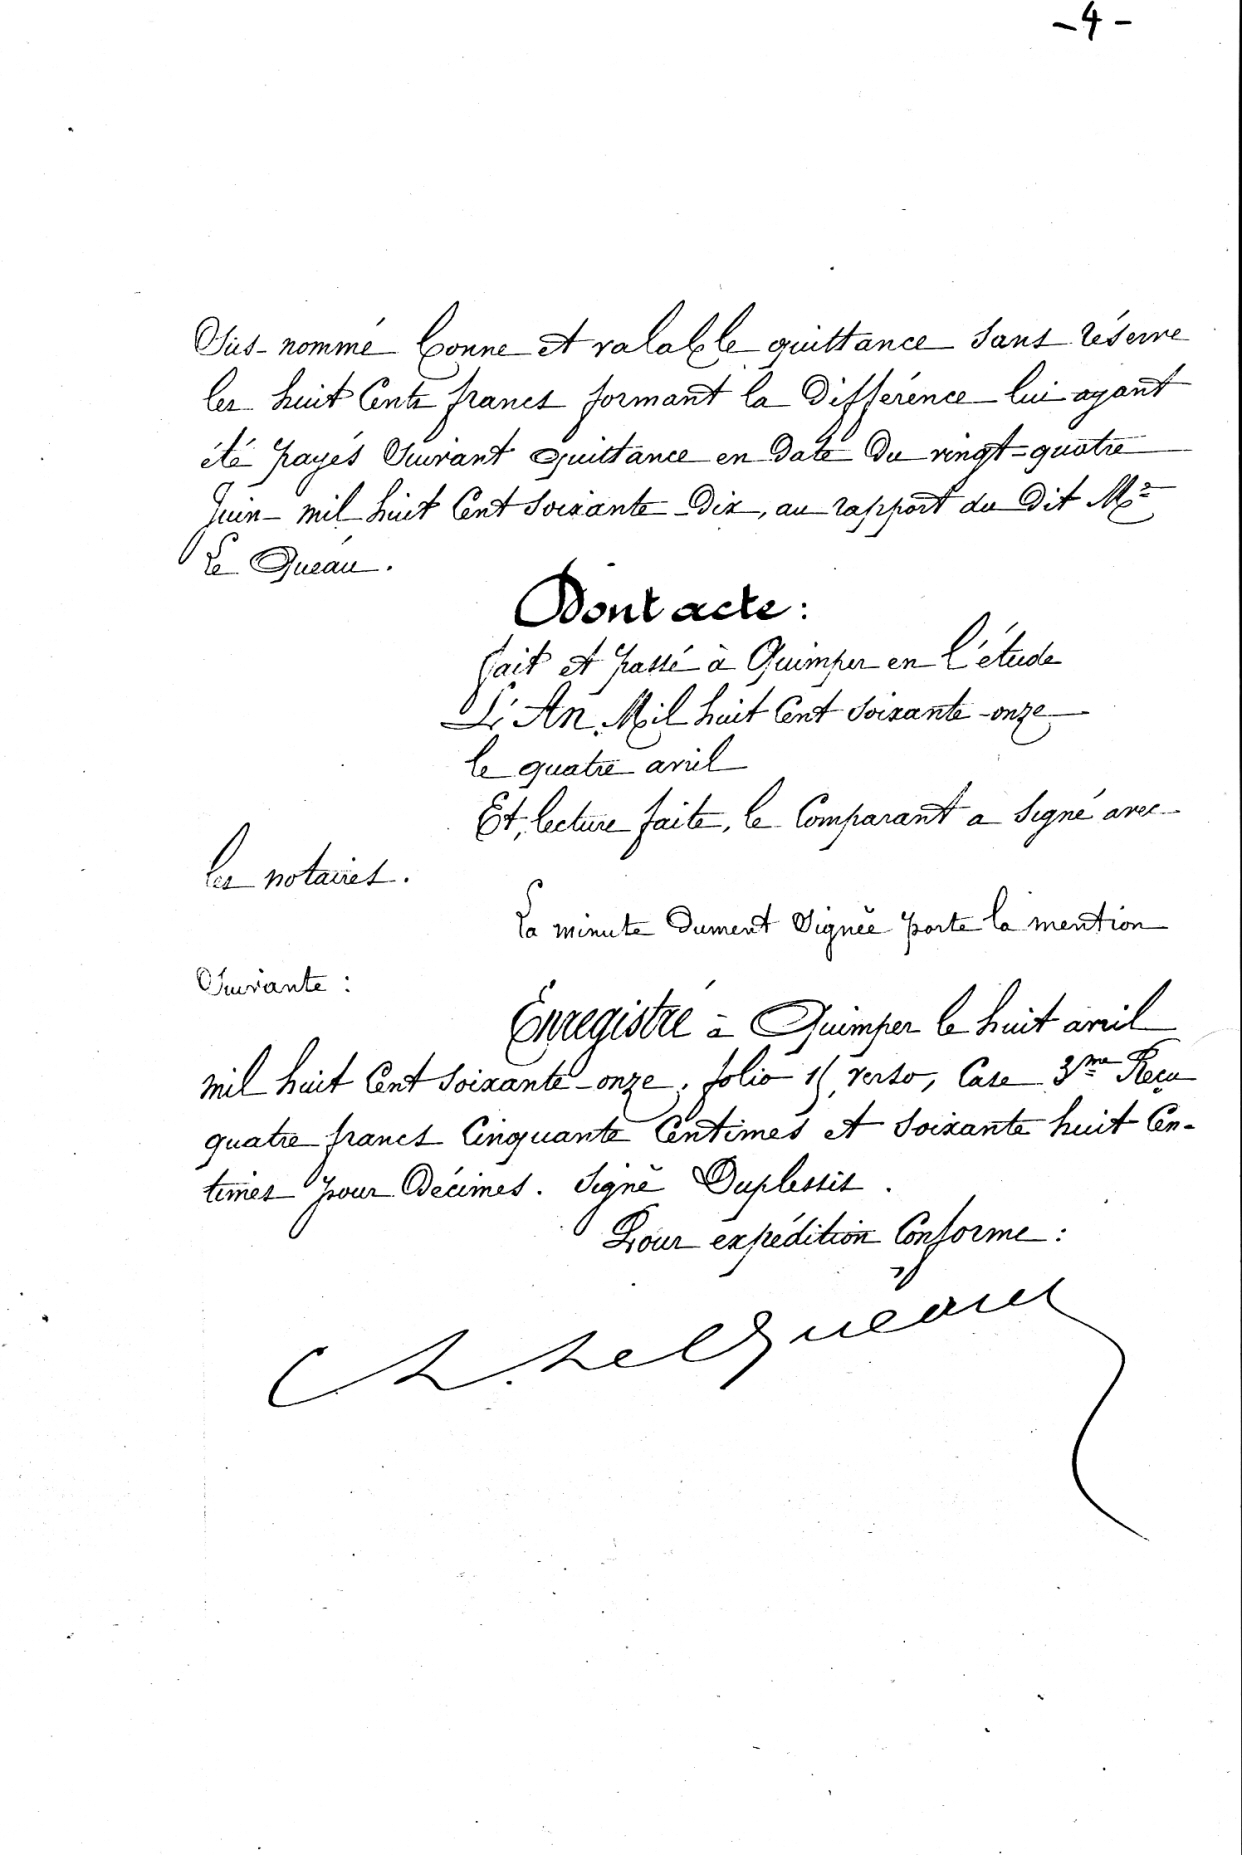 - 4 -
Sus-nommé bonne et valable quittance sans réserve
les huit cents francs formant la différence lui ayant
été payés suivant quittance en date du vingt-quatre
Juin mil huit cent soixante-dix, au rapport du dit Me
Le Quéau.
Dont acte :
fait et passé à Quimper en l'étude
L'An Mil huit cent soixante-onze
le quatre avril
Et, lecture faite, le comparant a signé avec
les notaires.
La minute dument signée porte la mention
Suivante :
Enregistré à Quimper le huit avril
mil huit cent soixante-onze, folio verso, Case 3me Reçu
quatre francs cinquante centimes et soixante huit cen-
times pour décimes. Signé Duplessis.
Pour expédition conforme :
Ch. Le Quéau